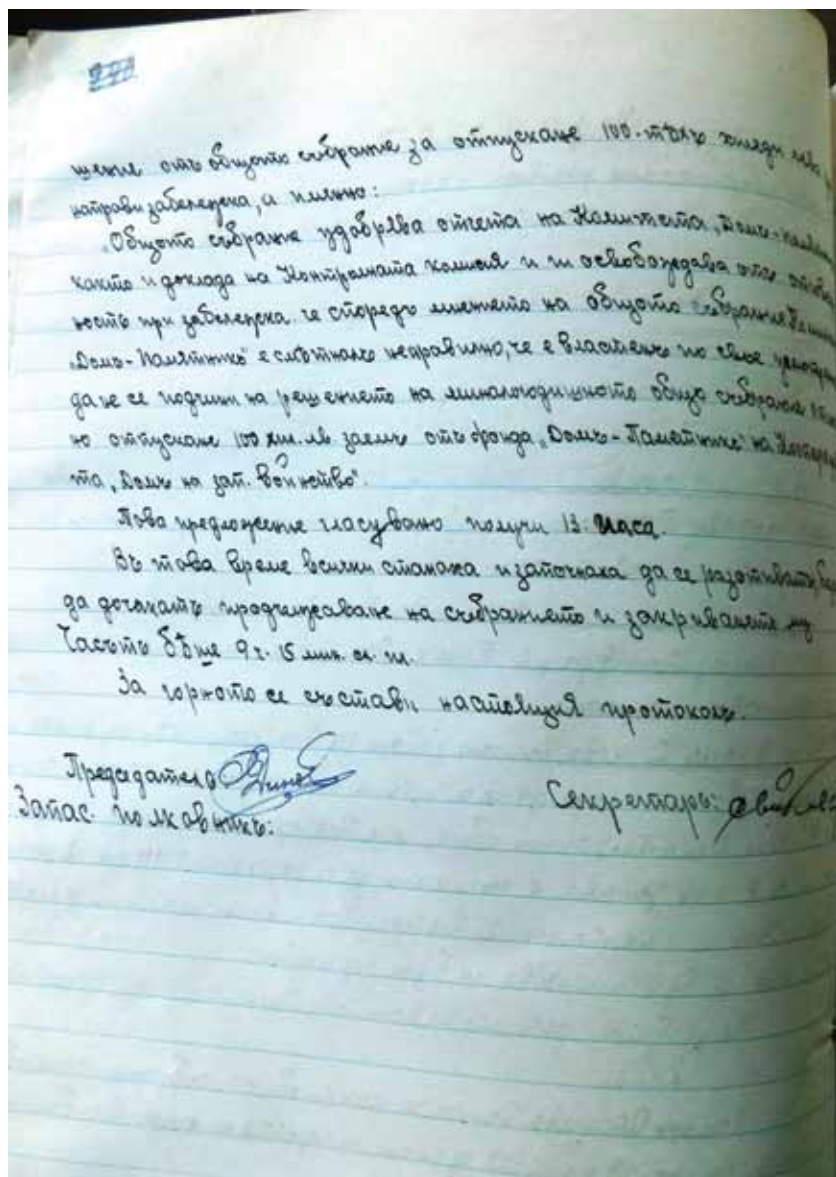 шение отъ общото събрание за отпускане 100-тѣхъ хиляди лева
направи забележка, а именно:
„Общото събрание удобрява отчета на Комитета „Домъ-
както и доклада на Контролната комисия и ги освобождава отъ
ность при забележка че споредъ мнението на общото събрание
„Домъ-Паметникъ" е смѣтналъ неправилно, че е властенъ по свое
да не се подчини на решението на миналогодишното общо събрание
но отпускане 100 хил. лв заемъ отъ фонда „Домъ-Паметникъ" на
та „Домъ на зап. войнство".
Това предложение гласувано получи 13. гласа.
Въ това време всички станаха и започнаха да се разотиватъ, без
да дочакатъ продължаване на събранието и закриването му
Часътъ бѣше 9 ч. 15 мин. сл. пл.
За горното се състави настоящия протоколъ.
Председатель
Секретарь:
Запас. полковникъ: